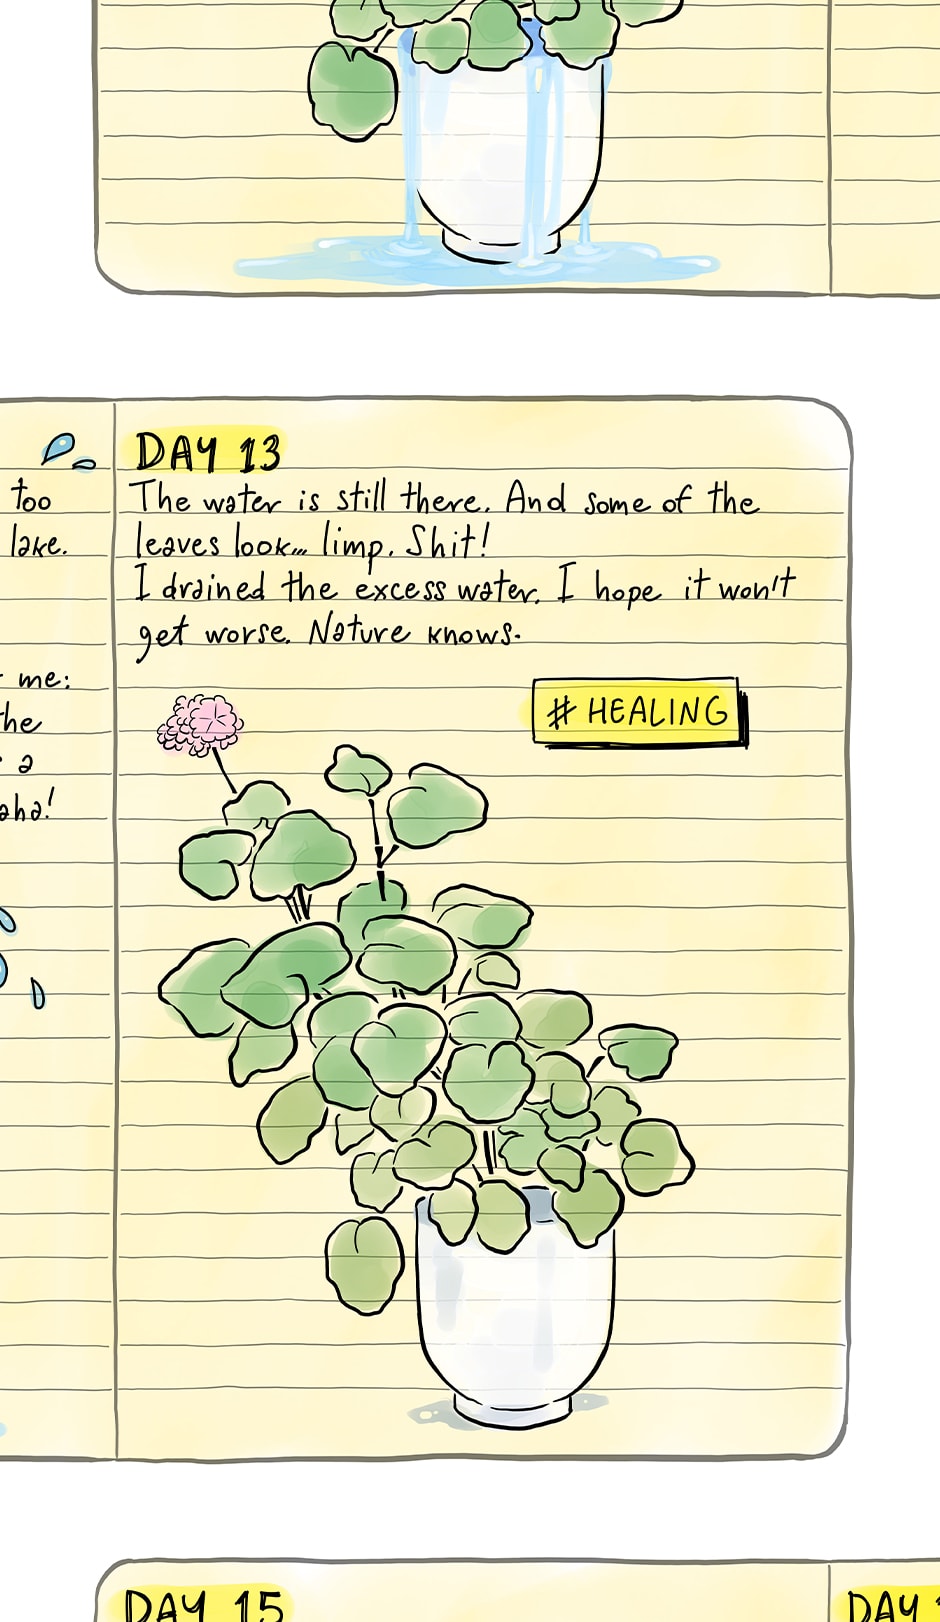 too
lake.
me:
a
DAY 13
The water is still there. And some of the
leaves look... limp. Shit!
I drained the excess water. I hope it won't
get worse. Nature knows.
# HEALING
DAY 15
DAY